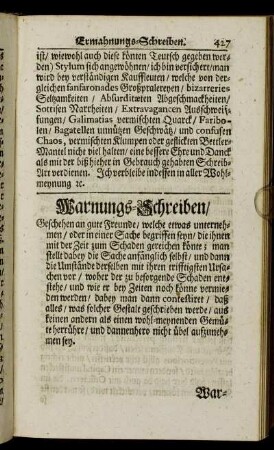 Ermahnungs-Schreiben. 427
ist/ wiewohl auch diese könten Teutsch gegeben wer-
den) Stylum sich angewöhnen/ ich bin versichert/ man
wird bey verständigen Kauffleuten/ welche von der-
gleichen fanfaronades Großpralereyen/ bizarreries
Seltzamkeiten / Absurditaten Abgeschmacktheiten/
Sottisen Narrheiten/ Extravagancen Ausschweif-
fungen/ Galimatias vermischten Quarck/ Faribo-
len/ Bagatellen unnützen Geschwätz/ und confusen
Chaos, vermischten Klumpen oder geflickten Bettler-
Mantel nicht viel halten/ eine bessere Ehr und Danck
als mit der bißhieher in Gebrauch gehabten Schreib-
Art verdienen. Ich verbleibe indessen in aller Wohl-
meynung ꝛc.
Warnungs-Schreiben/
Geschehen an gute Freunde/ welche etwas unterneh-
men/ oder in einer Sache begriffen seyn/ die ihnen
mit der Zeit zum Schaden gereichen könte; man
stelle dabey die Sache anfänglich selbst/ und dann
die Umstände derselben mit ihren trifftigsten Ursa-
chen vor/ woher der zu besorgende Schaden ent-
stehe/ und wie er bey Zeiten noch könne vermie-
den werden/ dabey man dann contestiret/ daß
alles/ was solcher Gestalt geschrieben werde/ aus
keinen andern als einem wohl-meynenden Gemü-
te herrühre/ und dannenhero nicht übel aufzuneh-
men sey.
War-